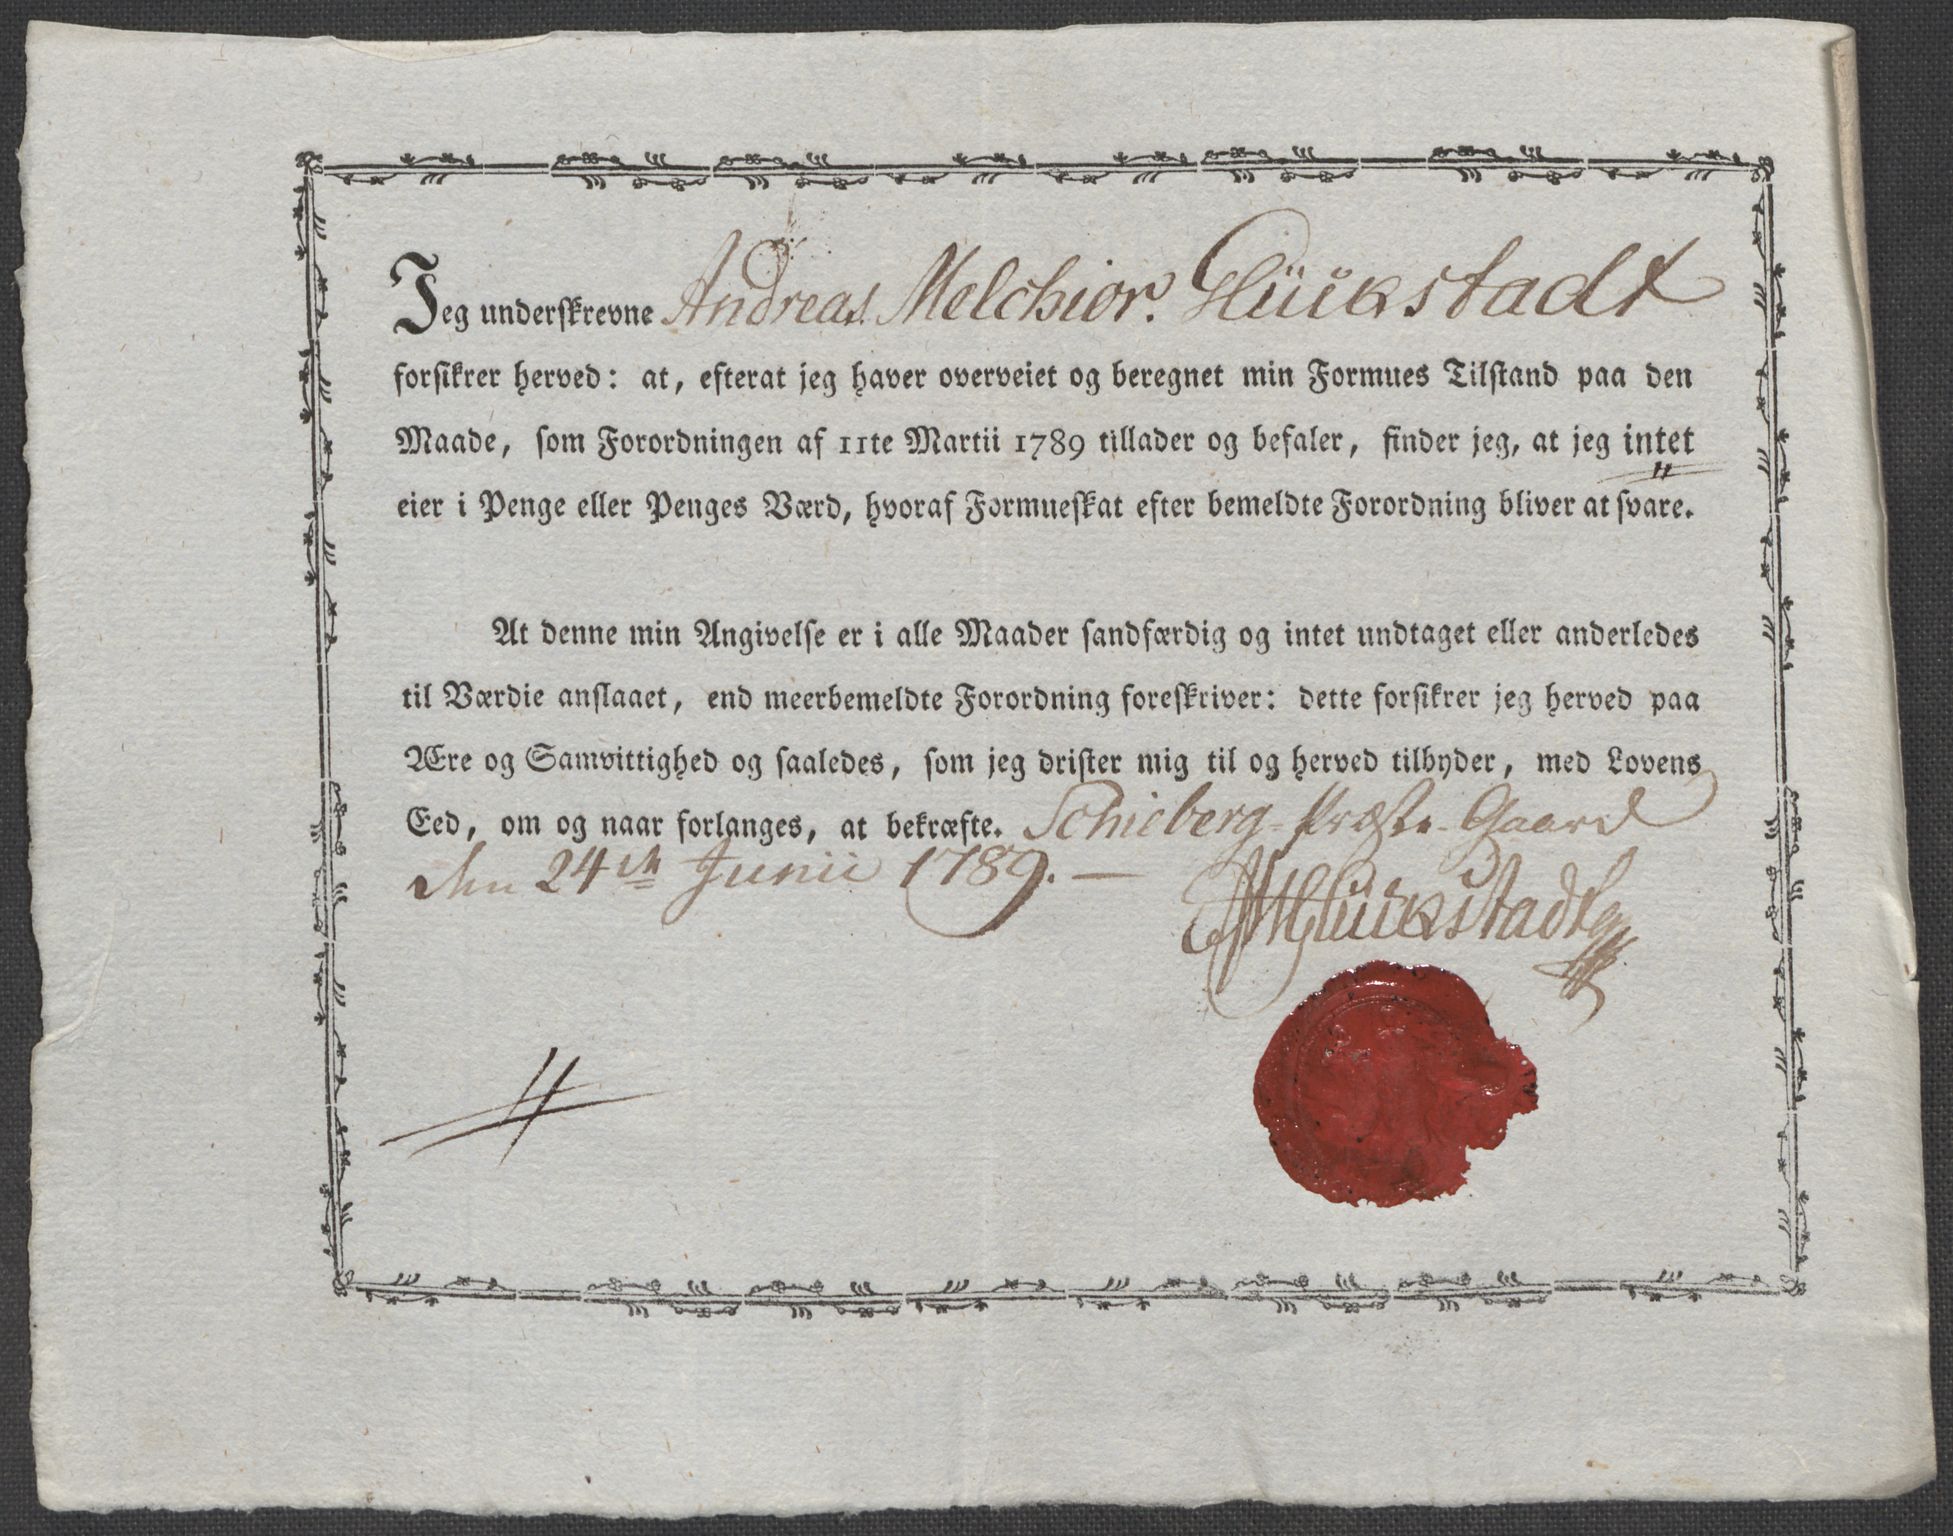 Jeg underskrevne Andreas Melchior Glückstadt
forsikrer herved: at, efterat jeg haver overveiet og beregnet min Formues Tilstand paa den
Maade, som Forordningen af 11te Martii 1789 tillader og befaler, finder jeg, at jeg intet
eier i Penge eller Penges Værd, hvoraf Formueskat efter bemeldte Forordning bliver at svare.
At denne min Angivelse er i alle Maader sandfærdig og intet undtaget eller anderledes
til Værdie anslaaet, end meerbemeldte Forordning foreskriver: dette forsikrer jeg herved paa
Ære og Samvittighed og saaledes, som jeg drister mig til og herved tilbyder, med Lovens
Eed, om og naar forlanges, at bekræfte. Schieberg-Præste-Gaard
den 24de Junii 1789. —
AMGlückstadt